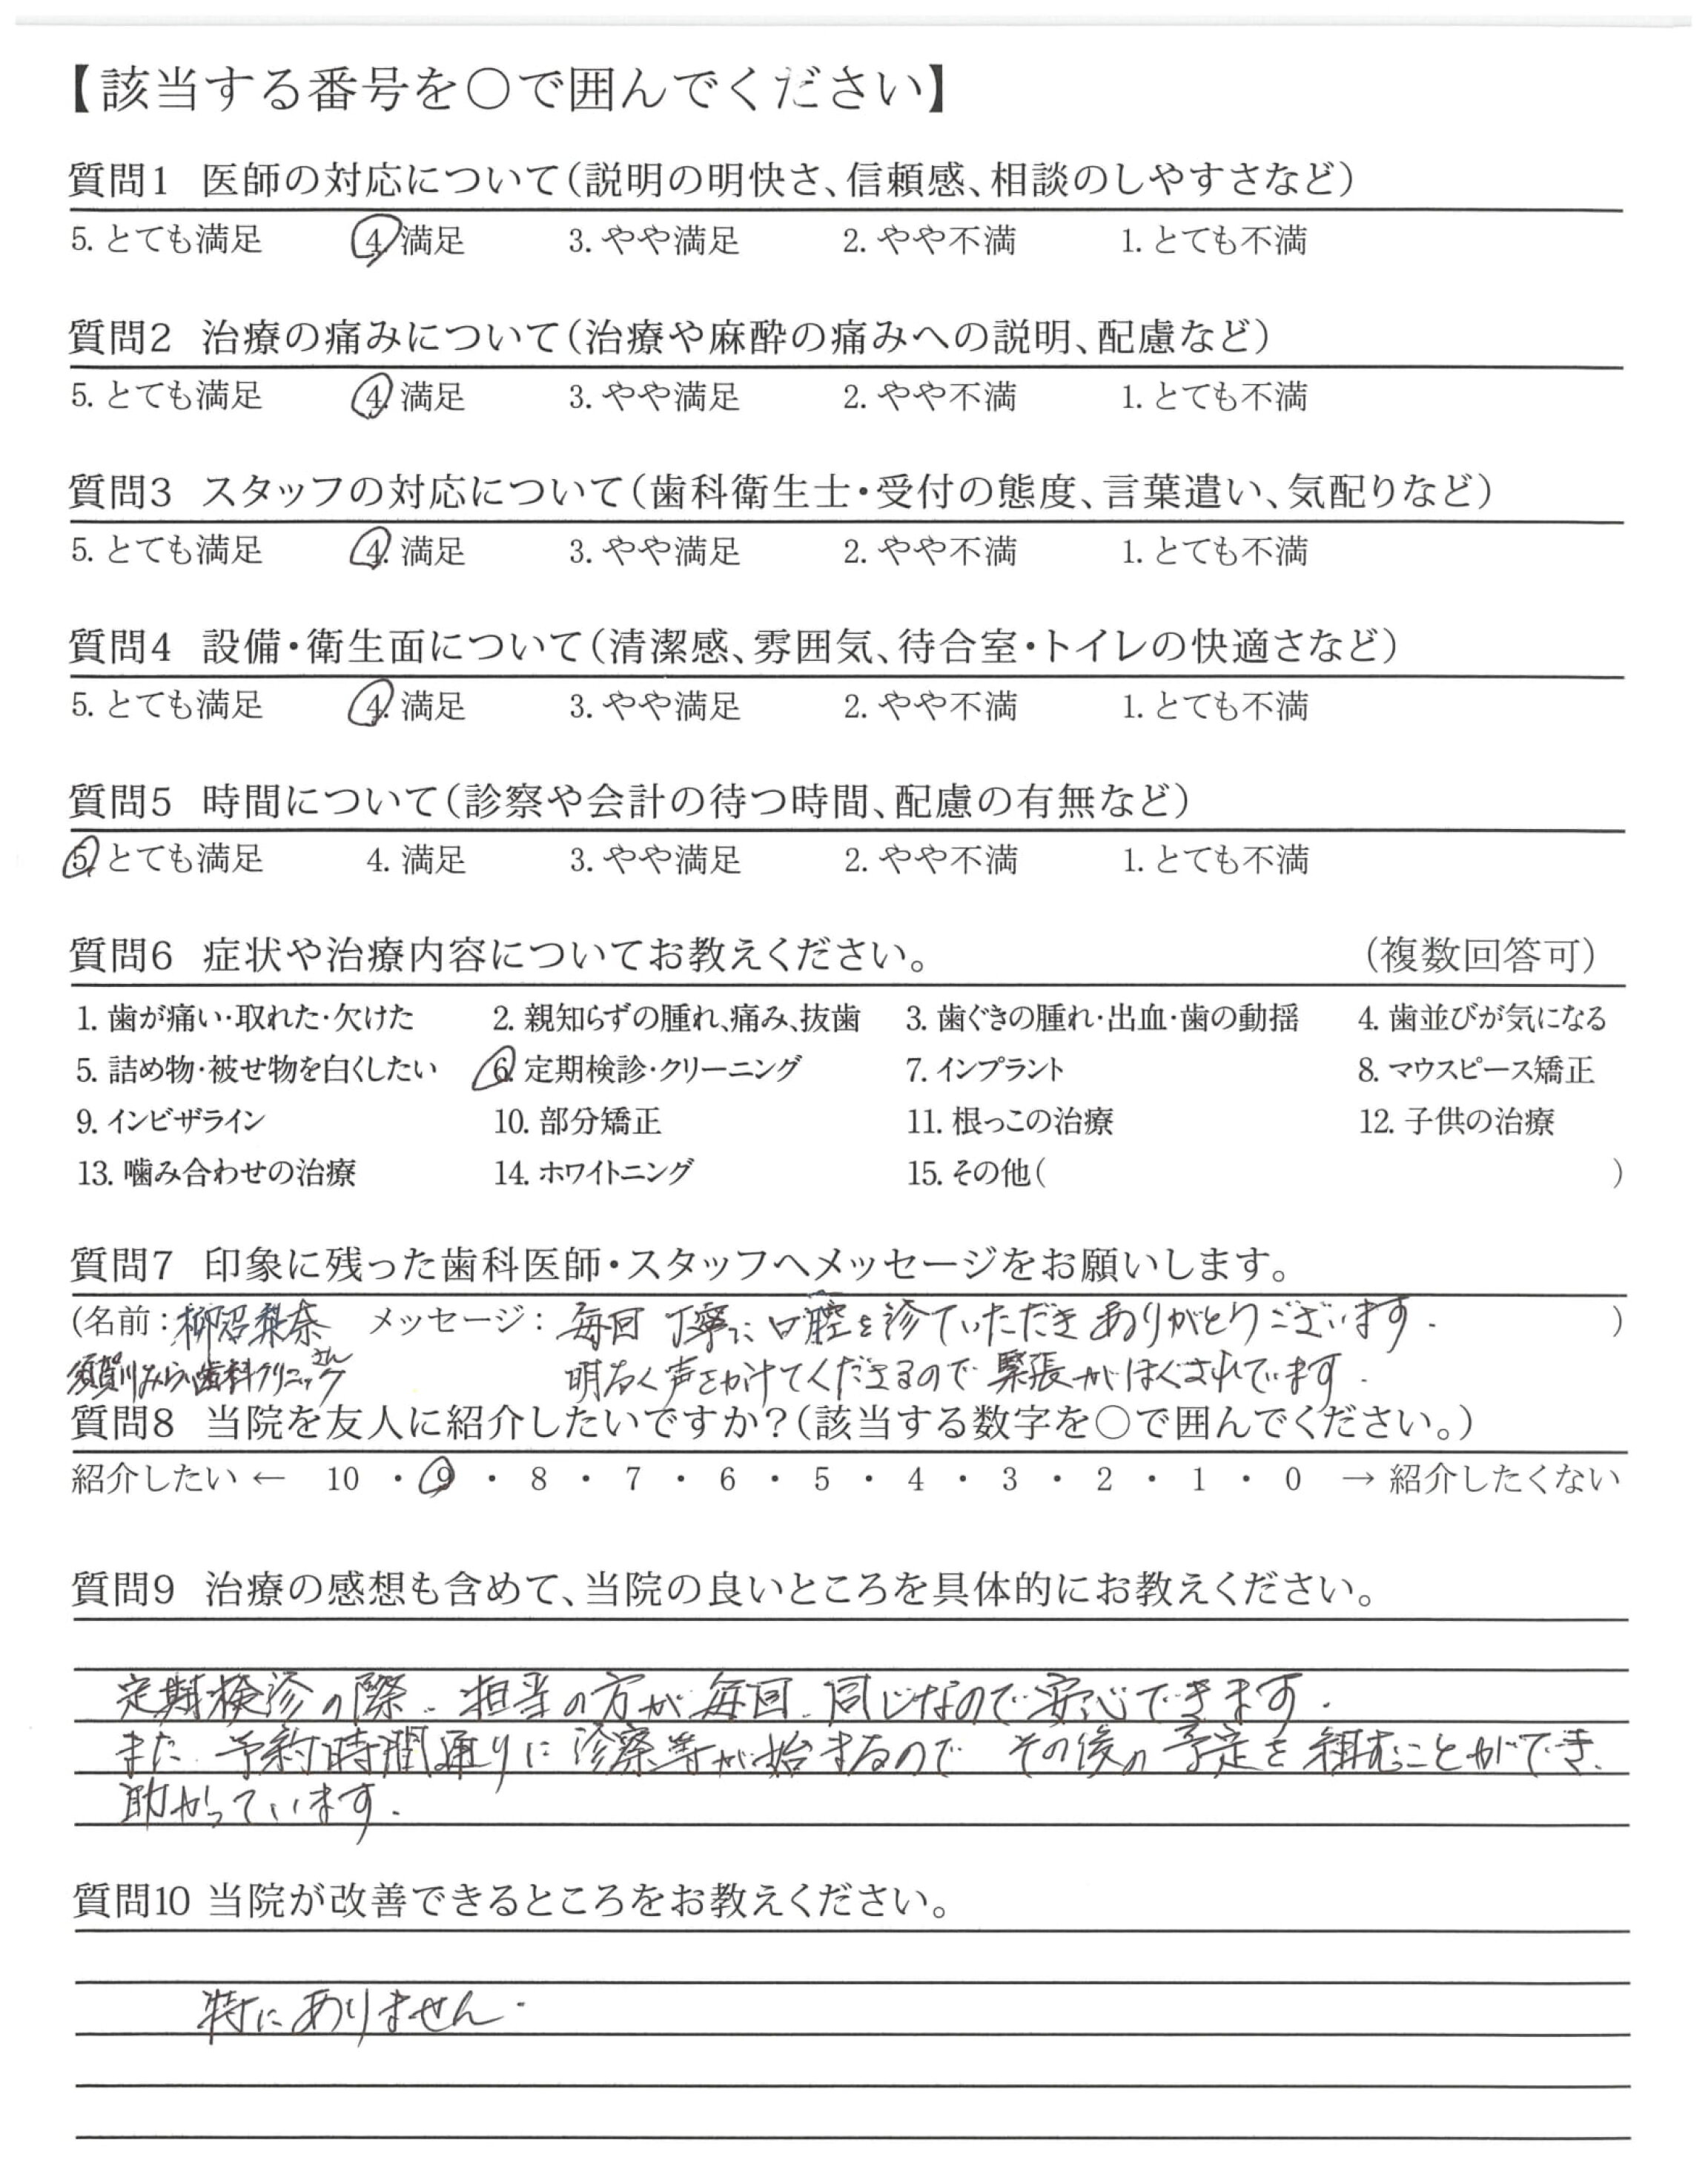 【該当する番号を○で囲んでください】
質問1 医師の対応について(説明の明快さ、信頼感、相談のしやすさなど)
5. とても満足 4. 満足 3. やや満足 2. やや不満 1. とても不満
質問2 治療の痛みについて(治療や麻酔の痛みへの説明、配慮など)
5. とても満足 4. 満足 3. やや満足 2. やや不満 1. とても不満
質問3 スタッフの対応について(歯科衛生士・受付の態度、言葉遣い、気配りなど)
5. とても満足 4. 満足 3. やや満足 2. やや不満 1. とても不満
質問4 設備・衛生面について(清潔感、雰囲気、待合室・トイレの快適さなど)
5. とても満足 4. 満足 3. やや満足 2. やや不満 1. とても不満
質問5 時間について(診察や会計の待つ時間、配慮の有無など)
5. とても満足 4. 満足 3. やや満足 2. やや不満 1. とても不満
質問6 症状や治療内容についてお教えください。 (複数回答可)
1. 歯が痛い・取れた・欠けた 2. 親知らずの腫れ、痛み、抜歯 3. 歯ぐきの腫れ・出血・歯の動揺 4. 歯並びが気になる
5. 詰め物・被せ物を白くしたい 6. 定期検診・クリーニング 7. インプラント 8. マウスピース矯正
9. インビザライン 10. 部分矯正 11. 根っこの治療 12. 子供の治療
13. 噛み合わせの治療 14. ホワイトニング 15. その他( )
質問7 印象に残った歯科医師・スタッフへメッセージをお願いします。
(名前:柳沼梨奈さん メッセージ: 毎回 丁寧に口腔を診ていただきありがとうございます. )
須賀川みらい歯科クリニック 明るく声をかけてくださるので緊張がほぐされています.
質問8 当院を友人に紹介したいですか?(該当する数字を○で囲んでください。)
紹介したい ← 10 ・ 9 ・ 8 ・ 7 ・ 6 ・ 5 ・ 4 ・ 3 ・ 2 ・ 1 ・ 0 → 紹介したくない
質問9 治療の感想も含めて、当院の良いところを具体的にお教えください。
定期検診の際、担当の方が毎回、同じなので安心できます.
また、予約時間通りに診察等が始まるので その後の予定を組むことができ、
助かっています.
質問10 当院が改善できるところをお教えください。
特にありません.